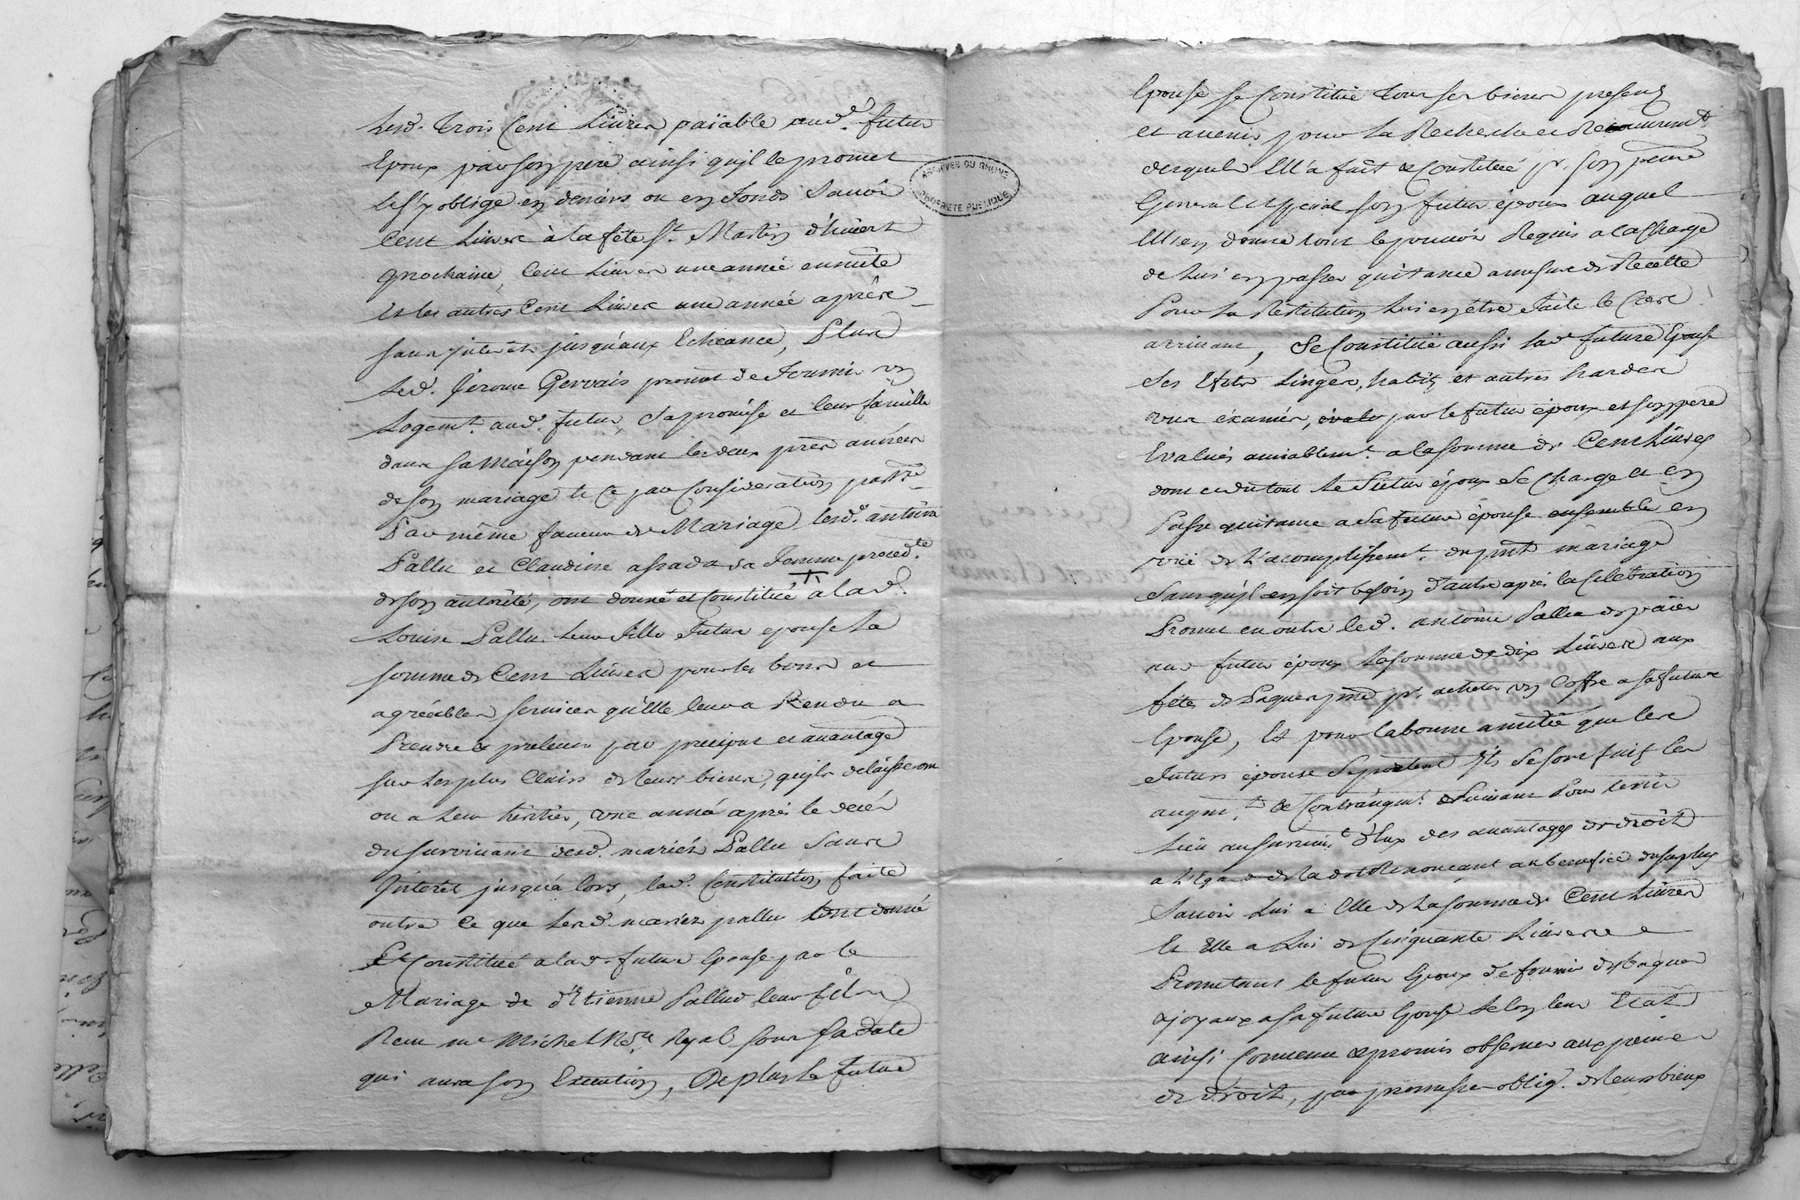 Lesd. trois Cent Livres païable aud.t futur
Epoux par son pere ainsi qu'il le promet
et s'y oblige en deniers ou en fonds Savoir
Cent Livres à la fete St. Martin d'hivert
prochaine, Cent Livres une année ensuite
Et les autres Cent Livres une année après
sans interêts jusqu'aux Echeance, Plus
Led. Jérome Gervais promet de fournir un
Logem.t aud. futur, sa promise et leur famille
dans sa maison pendant les deux pres années
de son mariage et ce par Consideration
Par même faveur de Mariage lesd. antoine
Pallu et Claudine sa femme proced.te
de son autorité, ont donné et Constitué à lad.
Louise Pallu leur fille future epouse La
somme de Cent Livres pour les bons et
agréables services qu'elle leur a Rendu a
Prendre et prelever par preciput et avantage
sur les plus Clairs de leurs biens, qu'ils delaisseront
ou a leur héritier, une année après le decés
du survivant desd. mariés Pallu Sans
Interet jusqu'à lors, lad. Constitution faite
outre ce que lesd. mariez pallu ont donné
Et Constitué a lad. future Epouse par le
Mariage de d'Etienne Pallud leur fils
Recu me Michel No.re Royal sous sa date
qui aura son Execution, De plus la future
ARCHIVES DU RHONE
PROPRIÉTÉ PUBLIQUE
Epouse se Constitue tous ses biens presens
et avenir pour La Recherche et Recouvrem.t
desquels Elle a fait et Constitué pr. son procur
General et Special son futur époux auquel
Elle en donne tout le pouvoir Requis a la Charge
de Lui en passer quitance a mesure de Recette
Pour La Restitution Lui en être faite le Cas
arrivant, Se Constitue aussi lad. future Epouse
Ses Linges, habits et autres hardes
vus examinés, par le futur époux et son pere
Evalués amiablem.t a la somme de Cent Livres
dont et du tout Le Futur époux Se Charge et en
Passe quitance a sa future épouse ensemble en
vuë de L'acomplissem.t du pnt mariage
Sans qu'il en soit besoin d'autre après la Celebration
Promet en outre led. antoine Pallu de païer
aud futur époux La somme de dix Livres aux
fêtes de Paques pour acheter un Coffre a sa future
Epouse, Et pour la bonne amitié que les
Futurs époux Se portent Ils Se sont faits les
augm.t et Contraugm.t Suivans Pour tenir
Lieu au survivt d'Eux des avantages de droit
a L'Egard de La dot Renonçant au benefice du surplus
Savoir Lui a Elle de La somme de Cent Livres
Et Elle a Lui de Cinquante Livres
Promettant le futur Epoux de fournir de bagues
et joyaux a sa future Epouse Selon leur Etat
ainsi Convenu et promis observer aux peines
de droit, par promesse oblig. de leurs biens